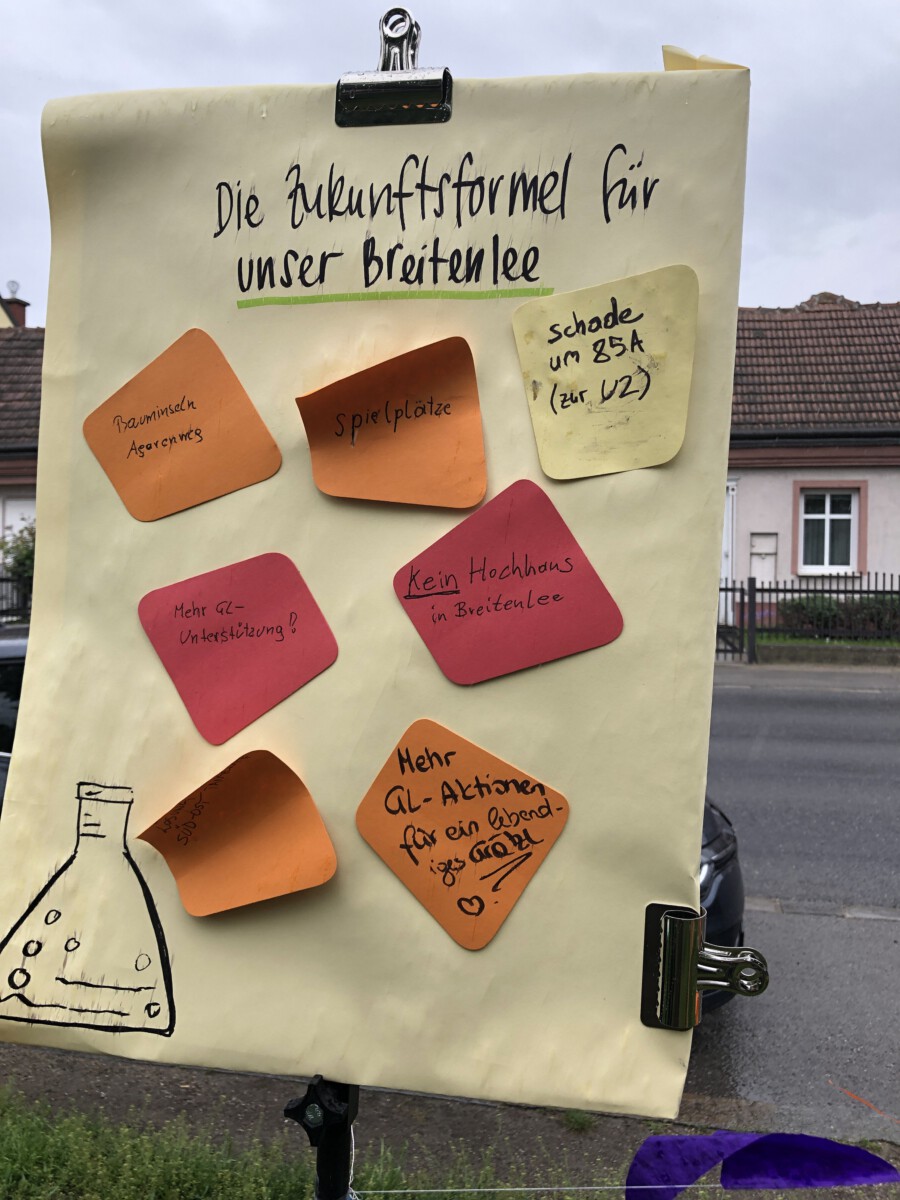 Die Zukunftsformel für
unser Breitenlee
Bauminseln
Agavenweg
Spielplätze
schade
um 85A
(zur U2)
Mehr GL-
Unterstützung!
Kein Hochhaus
in Breitenlee
SÜD-OST
Mehr
GL-Aktionen
für ein lebend-
iges Grätzl